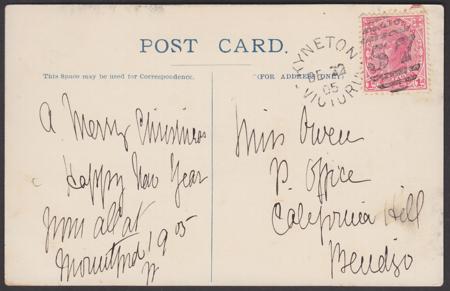 POST CARD.
This Space may be used for Correspondence.
(FOR ADDRESS ONLY)
KYNETON
DE 22
05
VICTORIA
A Merry Christmas
Happy New Year
from all at
1905
Miss Owen
P. Office
California Hill
Bendigo